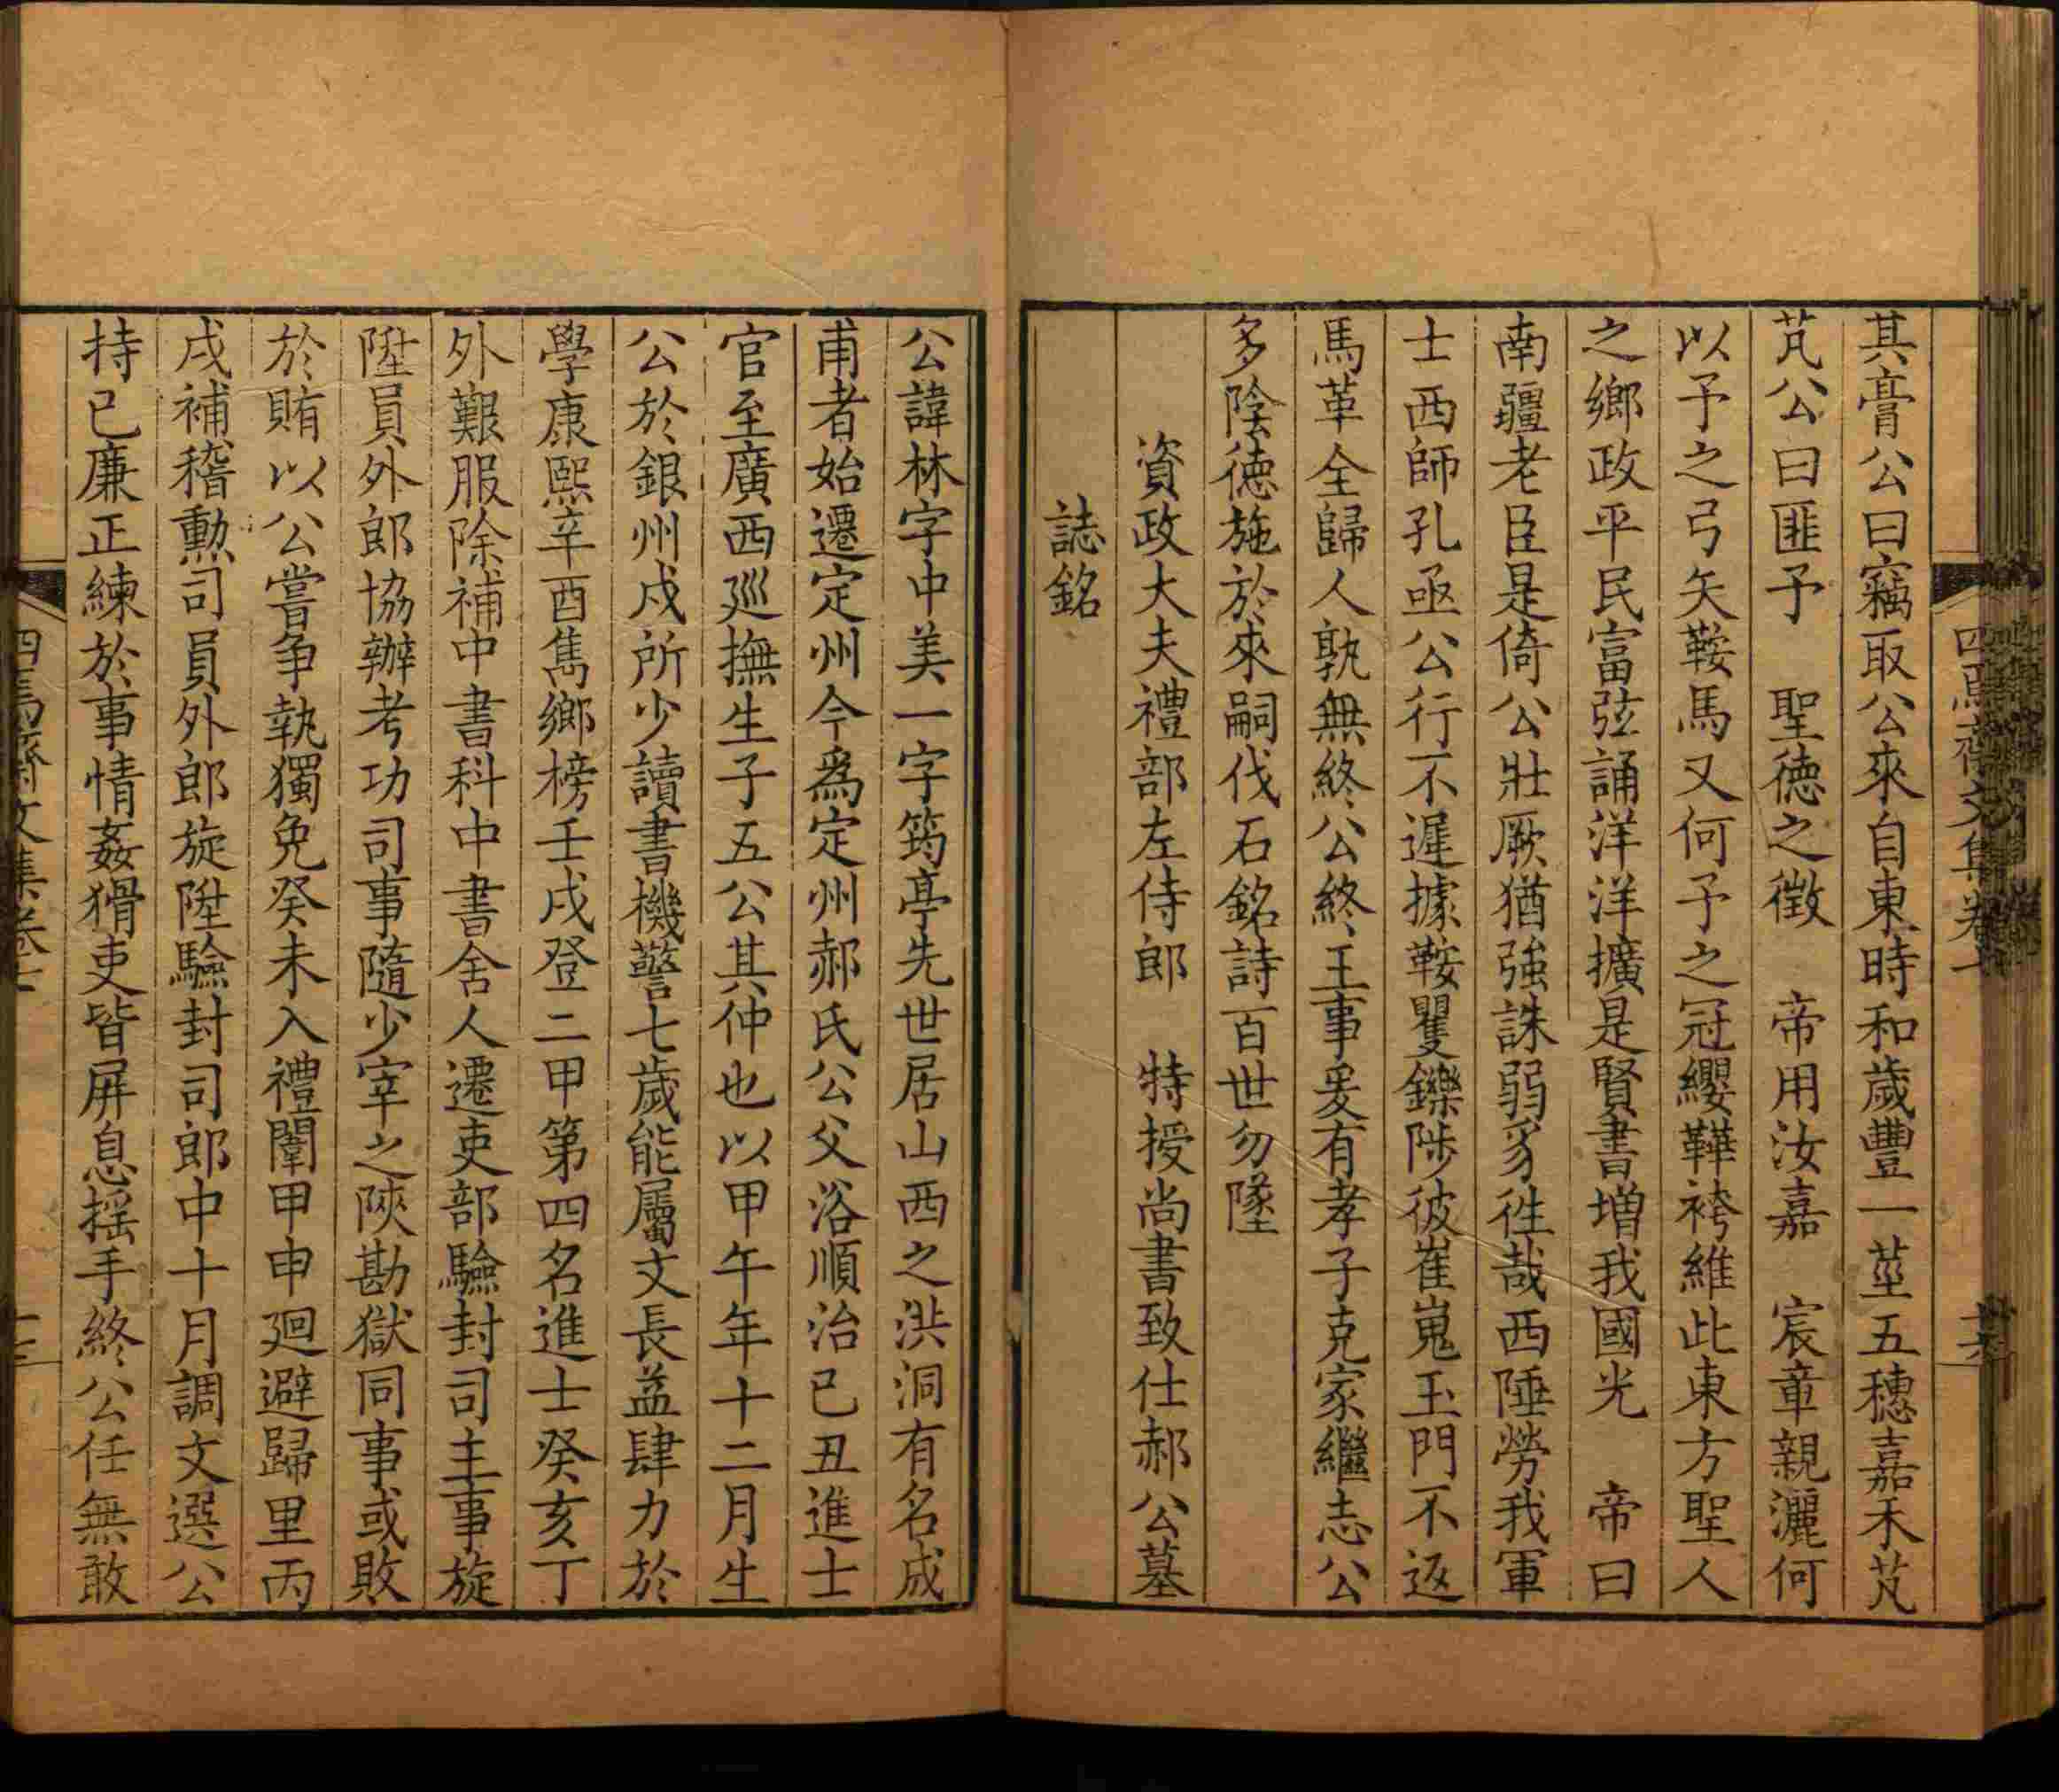 其膏公曰竊取公來自東時和歲豐一莖五穗嘉禾芃
芃公曰匪予　聖德之徵　帝用汝嘉　宸章親灑何
以予之弓矢鞍馬又何予之冠纓鞾袴維此東方聖人
之鄉政平民富弦誦洋洋擴是賢書增我國光　帝曰
南疆老臣是倚公壯厥猶強誅弱豸徃哉西陲勞我軍
士西師孔亟公行不遲據鞍矍鑠陟彼崔嵬玉門不返
馬革全歸人孰無終公終王事爰有孝子克家繼志公
多陰德施於來嗣伐石銘詩百世勿墜
資政大夫禮部左侍郎　特授尚書致仕郝公墓
誌銘
公諱林字中美一字筠亭先世居山西之洪洞有名成
甫者始遷定州今爲定州郝氏公父浴順治己丑進士
官至廣西廵撫生子五公其仲也以甲午年十二月生
公於銀州戍所少讀書機警七歲能屬文長益肆力於
學康熙辛酉雋鄉榜壬戌登二甲第四名進士癸亥丁
外艱服除補中書科中書舍人遷吏部驗封司主事旋
陞員外郎協辦考功司事隨少宰之陝勘獄同事或敗
於賄以公嘗争執獨免癸未入禮闈甲申廻避歸里丙
戌補稽勳司員外郎旋陞驗封司郎中十月調文選公
持已廉正練於事情姦猾吏皆屏息揺手終公任無敢
四焉齋文集卷七